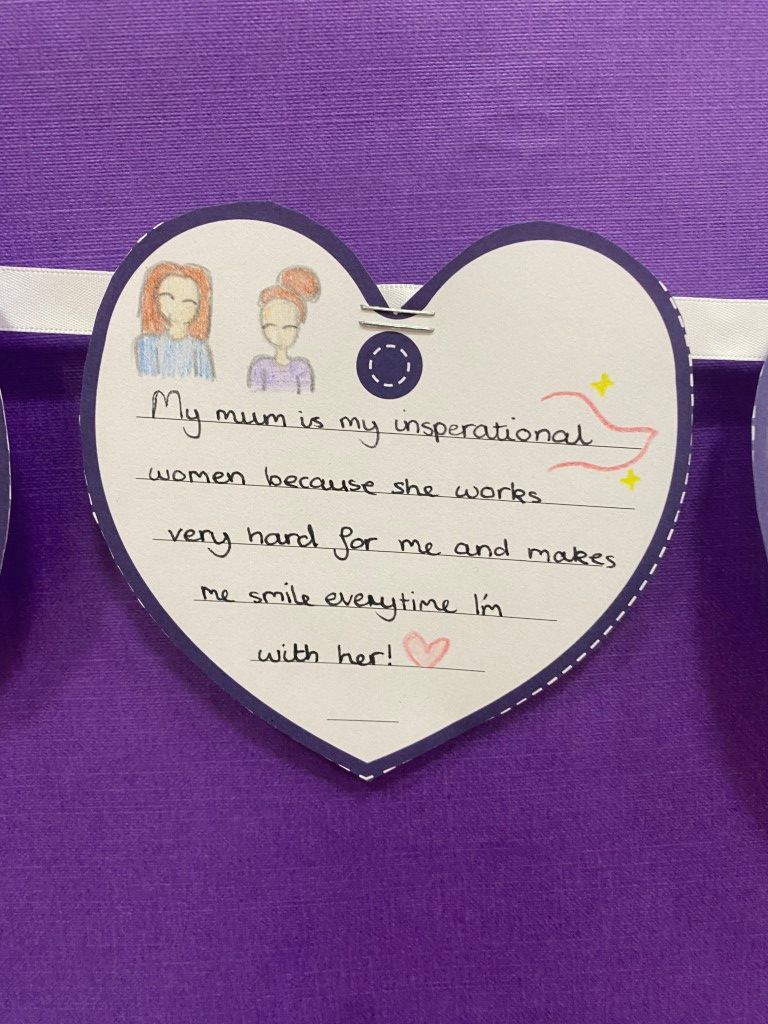 My mum is my insperational
women because she works
very hard for me and makes
me smile everytime I'm
with her!